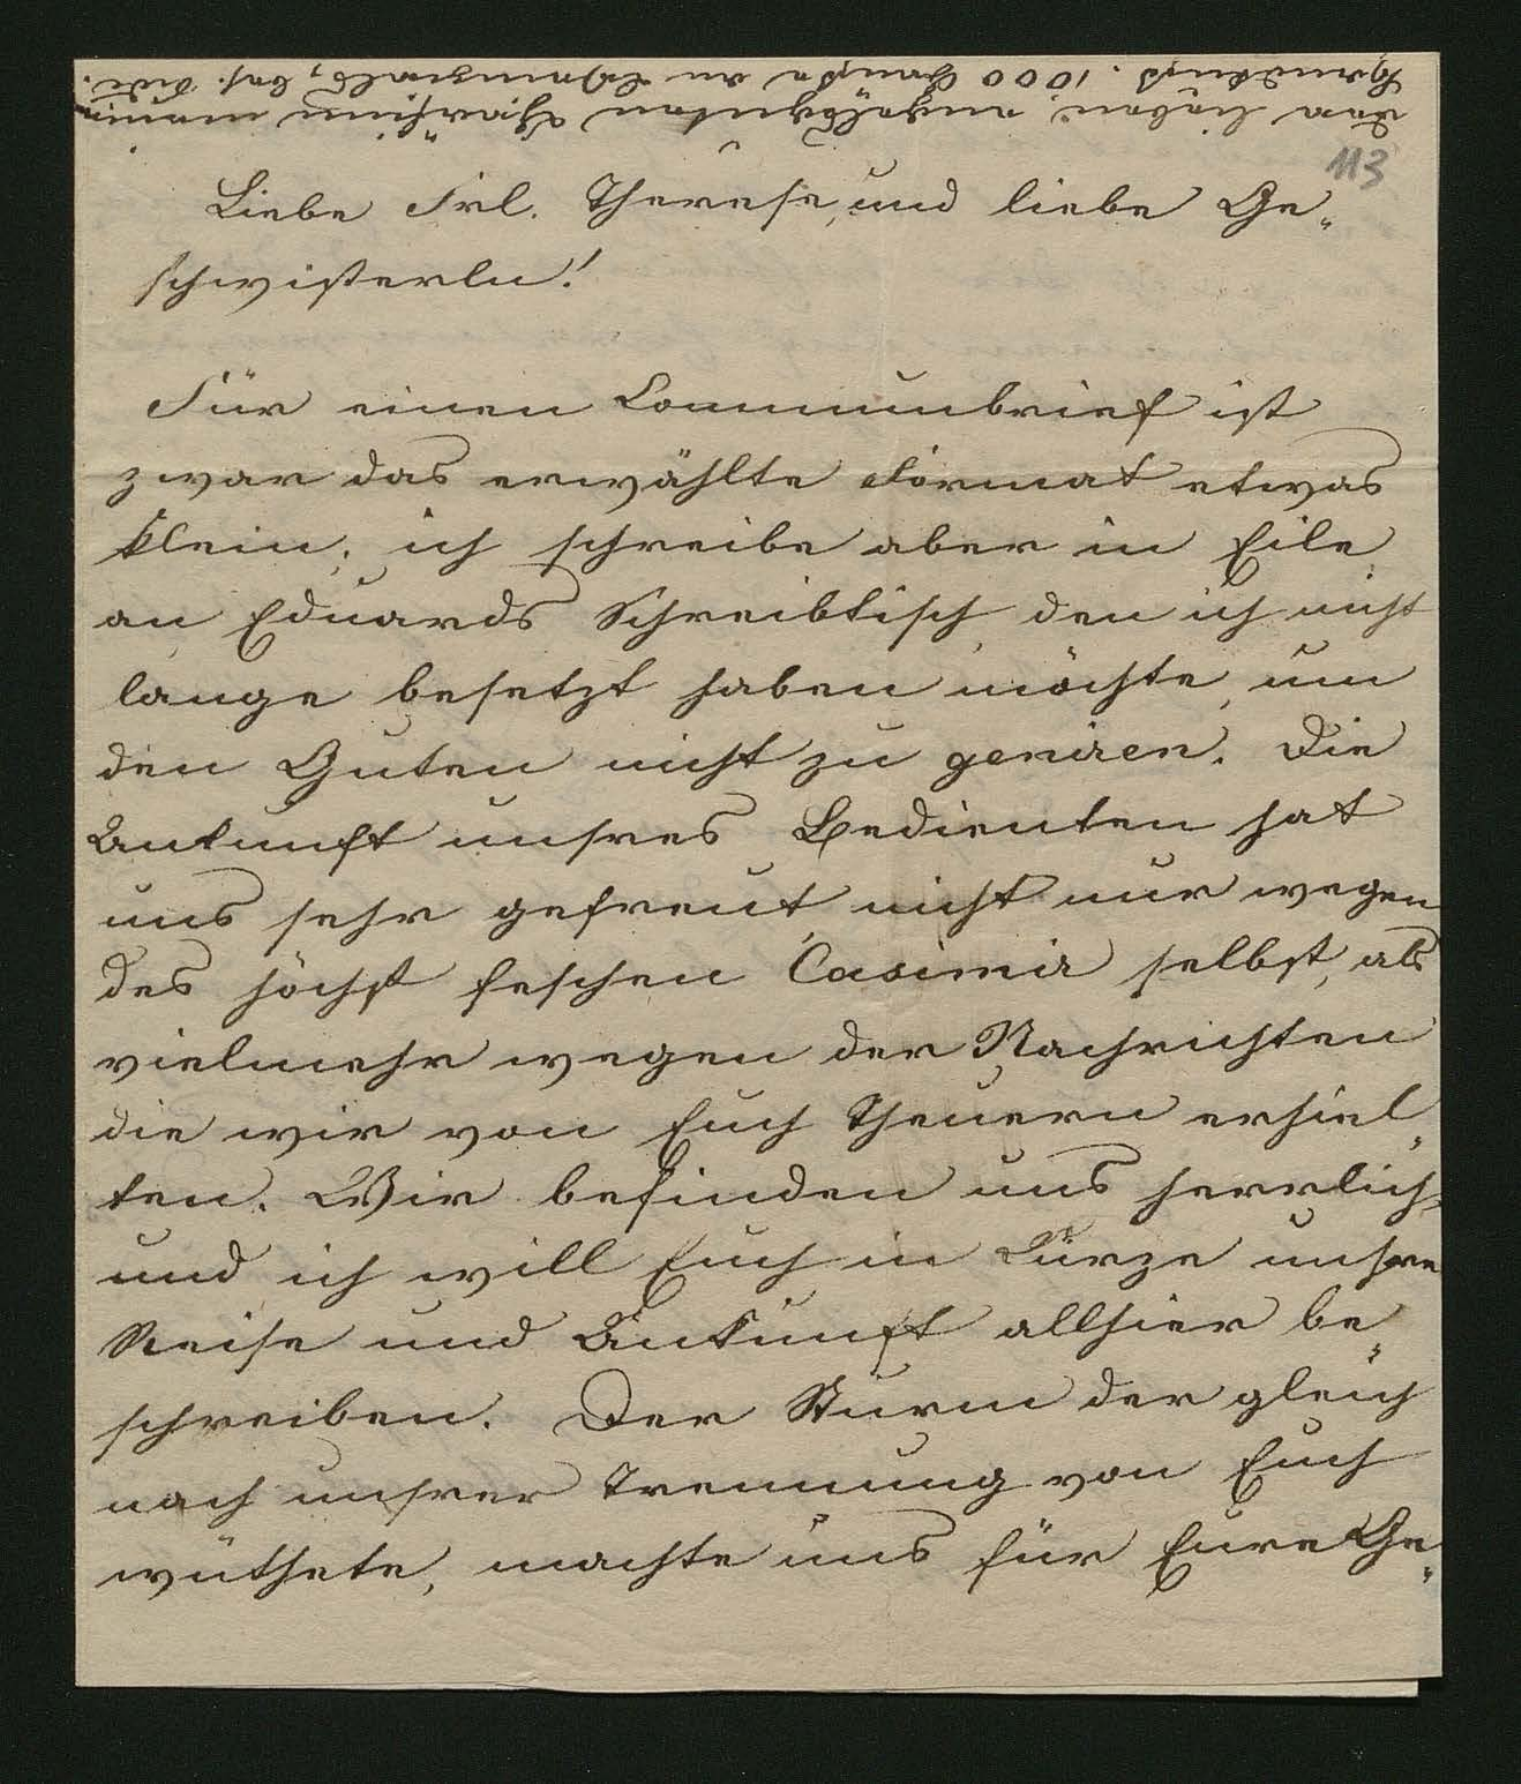 113
Liebe Frl. Therese, und liebe Ge„
schwisterln!
Für einen Communbrief ist
zwar das erwählte Format etwas
klein; ich schreibe aber in Eile
an Eduards Schreibtisch, den ich nicht
lange besetzt haben möchte, um
den Guten nicht zu geniren. Die
Ankunft unsres Bedienten hat
uns sehr gefreut, nicht nur wegen
des höchst feschen Casimir selbst, als
vielmehr wegen der Nachrichten
die wir von Euch Theuern erhiel„
ten. Wir befinden uns herrlich,
und ich will Euch in Kürze unsre
Reise und Ankunft allhier be„
schreiben. Der Sturm der gleich
nach unsrer Trennung von Euch
wüthete, machte uns für Eure Ge„
der lieben
1000 Grüße an